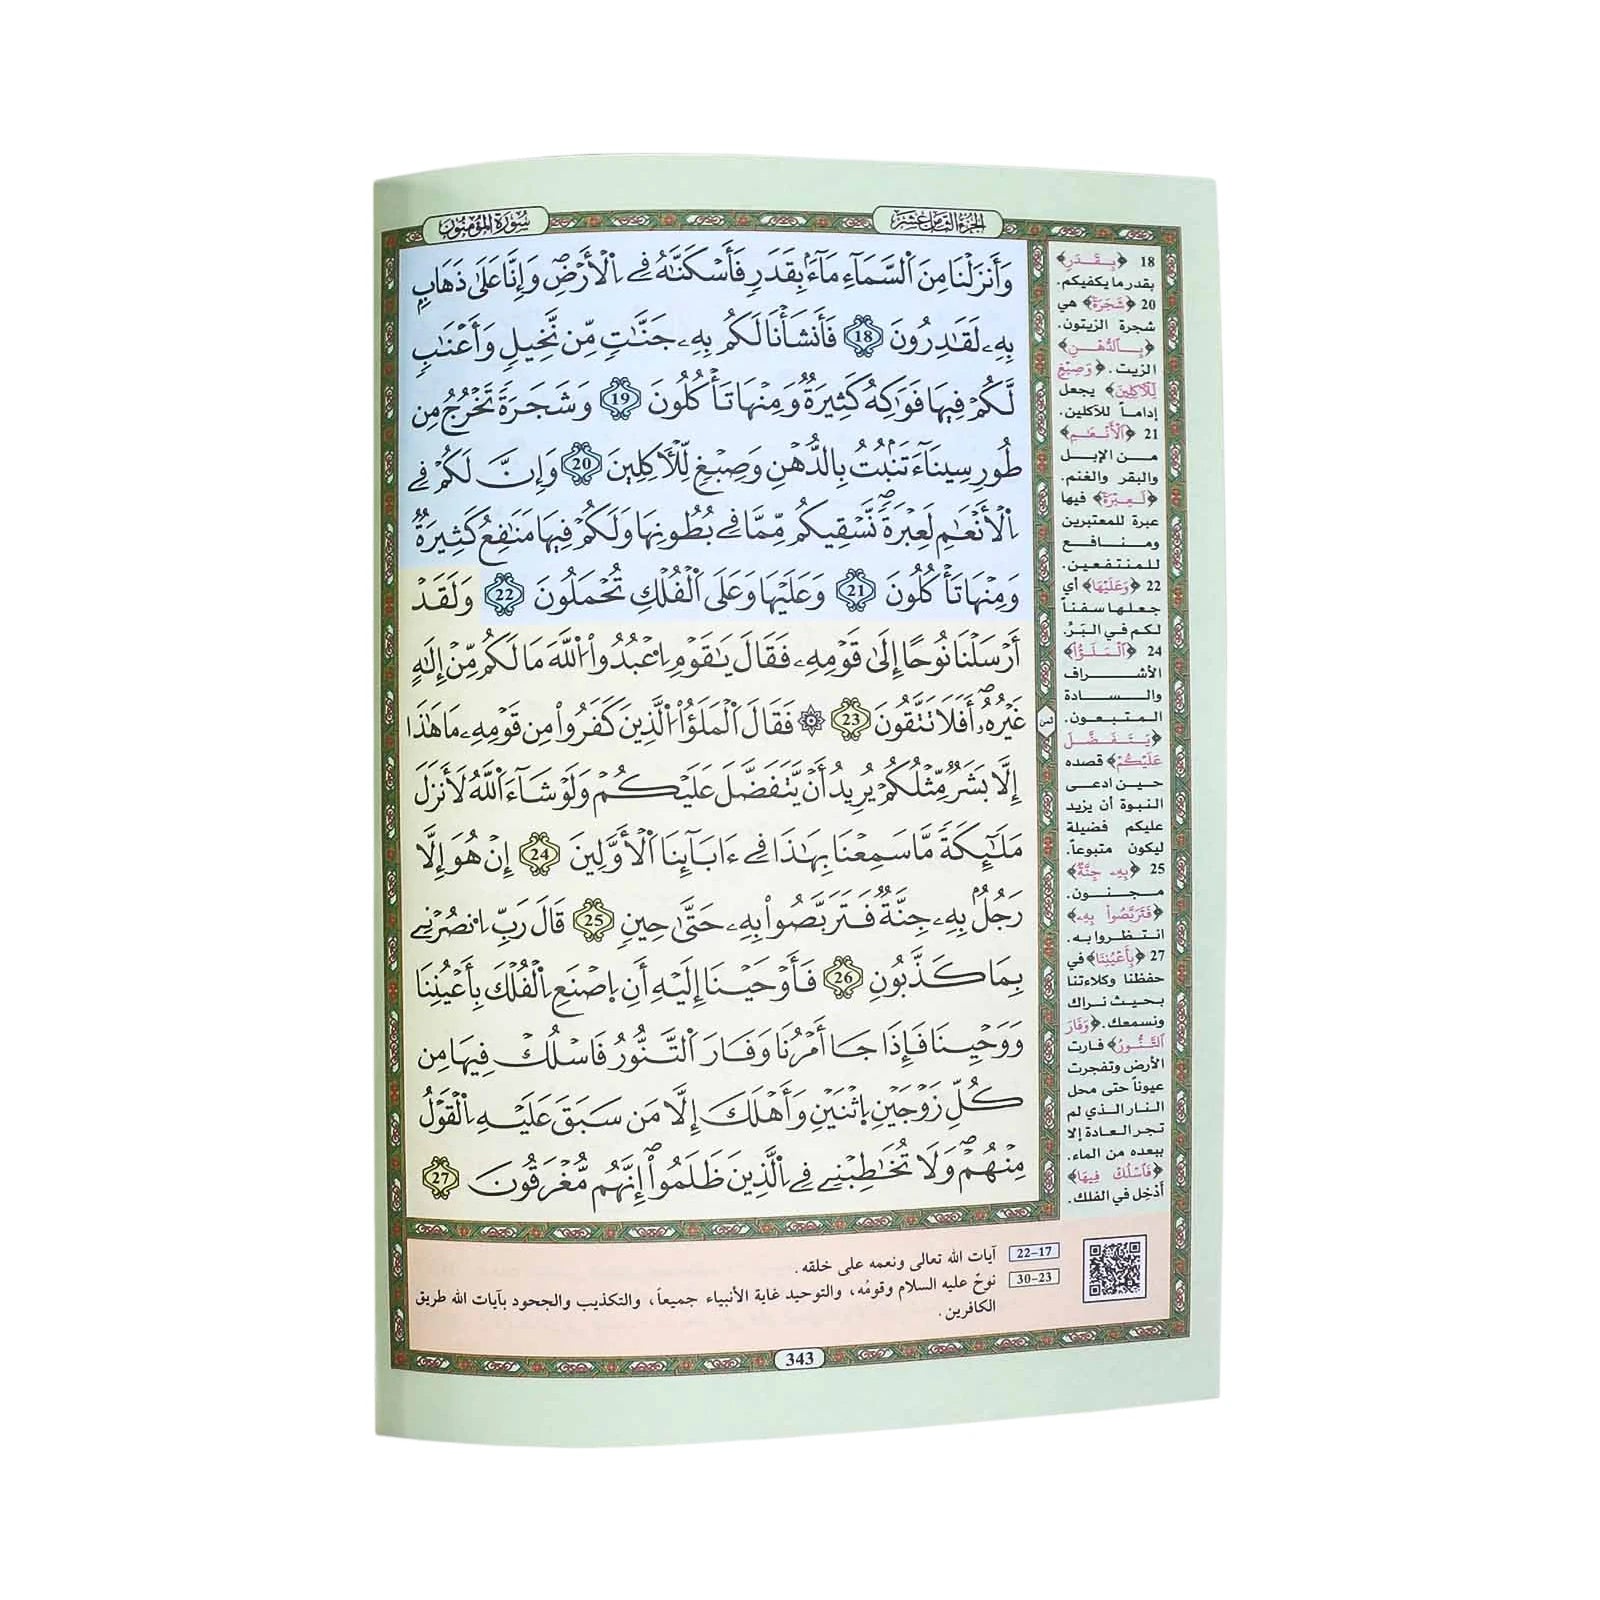 الجزء الثامن عشر
سورة المؤمنون
وَأَنزَلْنَا مِنَ اَ۬لسَّمَآءِ مَآءَۢ بِقَدَرٖ فَأَسْكَنَّٰهُ فِے اِ۬لْأَرْضِۖ وَإِنَّا عَلَىٰ ذَهَابِۢ
بِهِۦ لَقَٰدِرُونَ 18 فَأَنشَأْنَا لَكُم بِهِۦ جَنَّٰتٖ مِّن نَّخِيلٖ وَأَعْنَٰبٖ
لَّكُمْ فِيهَا فَوَٰكِهُ كَثِيرَةٞ وَمِنْهَا تَأْكُلُونَ 19 وَشَجَرَةٗ تَخْرُجُ مِن
طُورِ سِينَآءَ تَنۢبُتُ بِالدُّهْنِ وَصِبْغٖ لِّلْأٓكِلِينَ 20 وَإِنَّ لَكُمْ فِے
اِ۬لْأَنْعَٰمِ لَعِبْرَةٗۖ نَّسْقِيكُم مِّمَّا فِے بُطُونِهَا وَلَكُمْ فِيهَا مَنَٰفِعُ كَثِيرَةٞ
وَمِنْهَا تَأْكُلُونَ 21 وَعَلَيْهَا وَعَلَى اَ۬لْفُلْكِ تُحْمَلُونَ 22 وَلَقَدْ
أَرْسَلْنَا نُوحًا إِلَىٰ قَوْمِهِۦ فَقَالَ يَٰقَوْمِ اِ۟عْبُدُواْ اُ۬للَّهَ مَا لَكُم مِّنْ إِلَٰهٍ
غَيْرُهُۥٓۖ أَفَلَا تَتَّقُونَ 23 ۞ فَقَالَ اَ۬لْمَلَؤُاْ اُ۬لذِينَ كَفَرُواْ مِن قَوْمِهِۦ مَا هَٰذَا
إِلَّا بَشَرٞ مِّثْلُكُمْ يُرِيدُ أَنْ يَّتَفَضَّلَ عَلَيْكُمْ وَلَوْ شَآءَ اَ۬للَّهُ لَأَنزَلَ
مَلَٰٓئِكَةٗ مَّا سَمِعْنَا بِهَٰذَا فِے ءَابَآئِنَا اَ۬لْأَوَّلِينَ 24 إِنْ هُوَ إِلَّا
رَجُلُۢ بِهِۦ جِنَّةٞ فَتَرَبَّصُواْ بِهِۦ حَتَّىٰ حِينٖ 25 قَالَ رَبِّ اِ۟نصُرْنِے
بِمَا كَذَّبُونِ 26 فَأَوْحَيْنَا إِلَيْهِ أَنِ اِ۪صْنَعِ اِ۬لْفُلْكَ بِأَعْيُنِنَا
وَوَحْيِنَا فَإِذَا جَا أَمْرُنَا وَفَارَ اَ۬لتَّنُّورُ فَاسْلُكْ فِيهَا مِن
كُلِّ زَوْجَيْنِ اِ۪ثْنَيْنِ وَأَهْلَكَ إِلَّا مَن سَبَقَ عَلَيْهِ اِ۬لْقَوْلُ
مِنْهُمْۖ وَلَا تُخَٰطِبْنِے فِے اِ۬لذِينَ ظَلَمُواْۖ إِنَّهُم مُّغْرَقُونَ 27
18 ﴿بِقَدَرٖ﴾
بقدر ما يكفيكم.
20 ﴿شَجَرَةٗ﴾ هي
شجرة الزيتون.
﴿بِالدُّهْنِ﴾
الزيت. ﴿وَصِبْغٖ
لِّلْأٓكِلِينَ﴾ يجعل
إداماً للآكلين.
21 ﴿اَ۬لْأَنْعَٰمِ﴾
من الإبل
والبقر والغنم.
﴿لَعِبْرَةٗ﴾ فيها
عبرة للمعتبرين
ومنافع
للمنتفعين.
22 ﴿وَعَلَيْهَا﴾ أي
جعلها سفناً
لكم في البَرِّ.
24 ﴿اَ۬لْمَلَؤُاْ﴾
الأشراف
والسادة
المتبعون.
﴿يَتَفَضَّلَ
عَلَيْكُمْ﴾ قصده
حين ادعى
النبوة أن يزيد
عليكم فضيلة
ليكون متبوعاً.
25 ﴿بِهِۦ جِنَّةٞ﴾
مجنون.
﴿فَتَرَبَّصُواْ بِهِۦ﴾
انتظروا به.
27 ﴿بِأَعْيُنِنَا﴾ في
حفظنا وكلاءتنا
بحيث نراك
ونسمعك. ﴿وَفَارَ
اَ۬لتَّنُّورُ﴾ فارت
الأرض وتفجرت
عيوناً حتى محل
النار الذي لم
تجر العادة إلا
ببعده من الماء.
﴿فَاسْلُكْ فِيهَا﴾
أَدْخِل في الفلك.
ثمن
22-17 آيات الله تعالى ونعمه على خلقه.
30-23 نوحٌ عليه السلام وقومُه، والتوحيد غاية الأنبياء جميعاً، والتكذيب والجحود بآيات الله طريق
الكافرين.
343